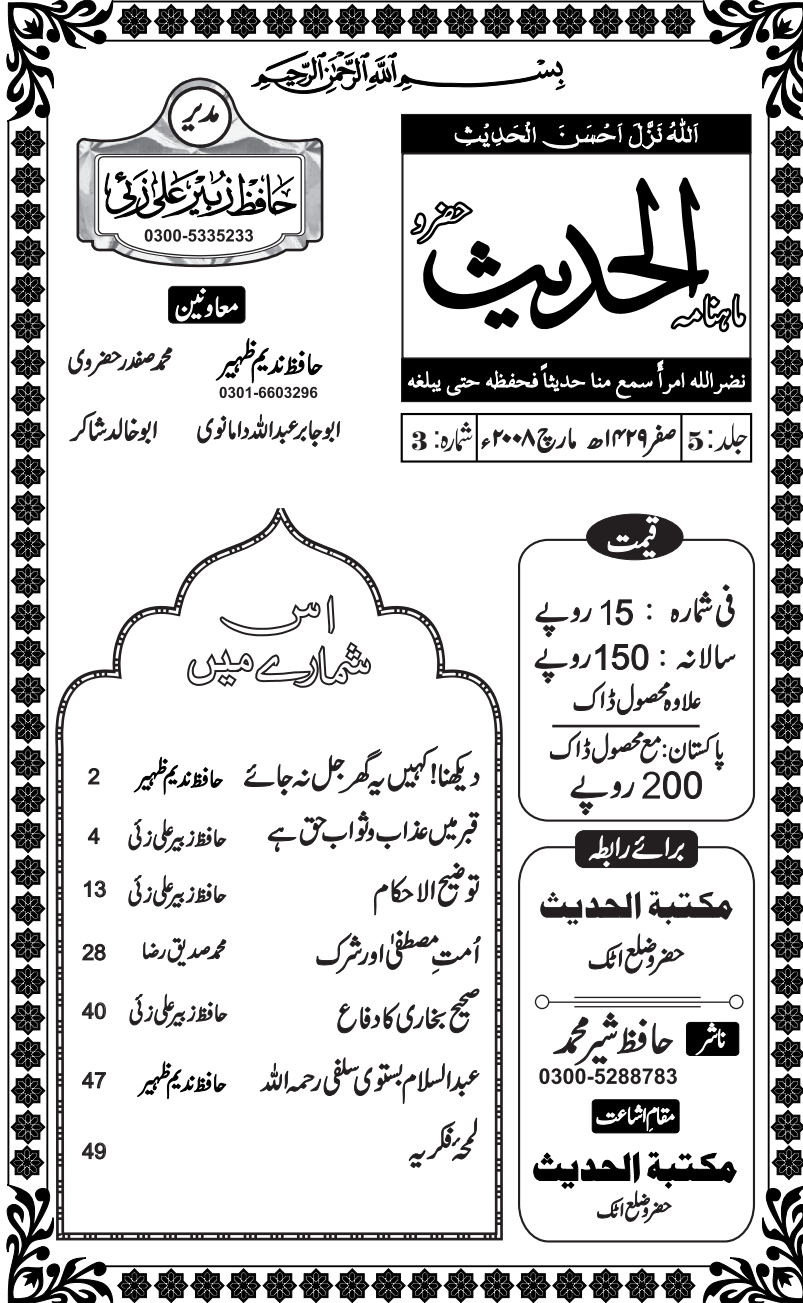 بِسْمِ اللهِ الرَّحْمٰنِ الرَّحِيْمِ
اَللهُ نَزَّلَ اَحْسَنَ الْحَدِيْثِ
ماہنامہ الحدیث حضرو
نضر الله امرأً سمع منا حديثاً فحفظه حتى يبلغه
جلد: 5
صفر ۱۴۲۹ھ مارچ ۲۰۰۸ء
شمارہ: 3
مدیر
حافظ زبیر علی زئی
0300-5335233
معاونین
حافظ ندیم ظہیر
0301-6603296
محمد صفدر حضروی
ابو جابر عبداللہ دامانوی
ابو خالد شاکر
قیمت
فی شمارہ : 15 روپے
سالانہ : 150 روپے
علاوہ محصول ڈاک
پاکستان: مع محصول ڈاک
200 روپے
برائے رابطہ
مكتبة الحديث
حضرو ضلع اٹک
ناشر حافظ شیر محمد
0300-5288783
مقامِ اشاعت
مكتبة الحديث
حضرو ضلع اٹک
اس
شمارے میں
دیکھنا! کہیں یہ گھر جل نہ جائے حافظ ندیم ظہیر 2
قبر میں عذاب و ثواب حق ہے حافظ زبیر علی زئی 4
توضیح الاحکام حافظ زبیر علی زئی 13
اُمتِ مصطفیٰ اور شرک محمد صدیق رضا 28
صحیح بخاری کا دفاع حافظ زبیر علی زئی 40
عبدالسلام بستوی سلفی رحمہ اللہ حافظ ندیم ظہیر 47
لمحۂ فکریہ 49